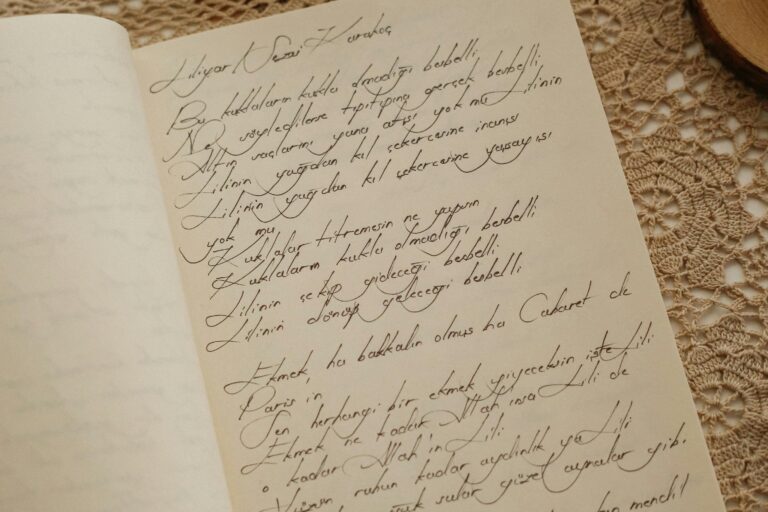 Liliyar / Sezai Karakoç
Bu kuklaların kukla olmadığı besbelli
Ne söyledilerse tıpıtıpına gerçek besbelli
Altın saçlarını yana atışı yok mu Lilinin
Lilinin yağdan kıl çekercesine inanışı
Lilinin yağdan kıl çekercesine yaşayışı
yok mu
Kuklalar titremesin ne yapsın
Kuklaların kukla olmadığı besbelli
Lilinin çekip gideceği besbelli
Lilinin dönüp geleceği besbelli
Ekmek, ha bakkalın olmuş ha Cabaret de
Paris in
Sen herhangi bir ekmek yiyeceksin işte Lili
Ekmek ne kadar Allah'ınsa Lili de
o kadar Allah'ın Lili
Yüzün ruhun kadar aydınlık ya Lili
sular güzel aynalar gib.
mendil